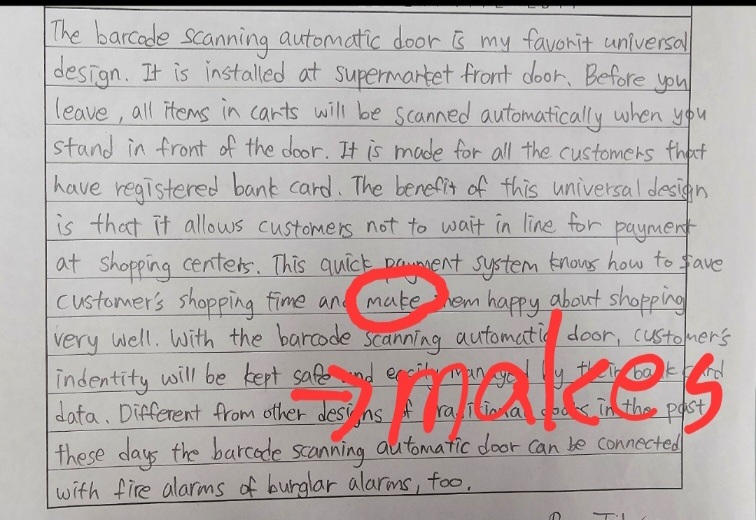 The barcode scanning automatic door is my favorit universal
design. It is installed at supermarket front door. Before you
leave, all items in carts will be scanned automatically when you
stand in front of the door. It is made for all the customers that
have registered bank card. The benefit of this universal design
is that it allows customers not to wait in line for payment
at shopping centers. This quick payment system knows how to save
customer's shopping time and make them happy about shopping
very well. With the barcode scanning automatic door, customer's
indentity will be kept safe and managed by their bank card
→ makes
data. Different from other designs of traditional doors in the past,
these days the barcode scanning automatic door can be connected
with fire alarms of burglar alarms, too.